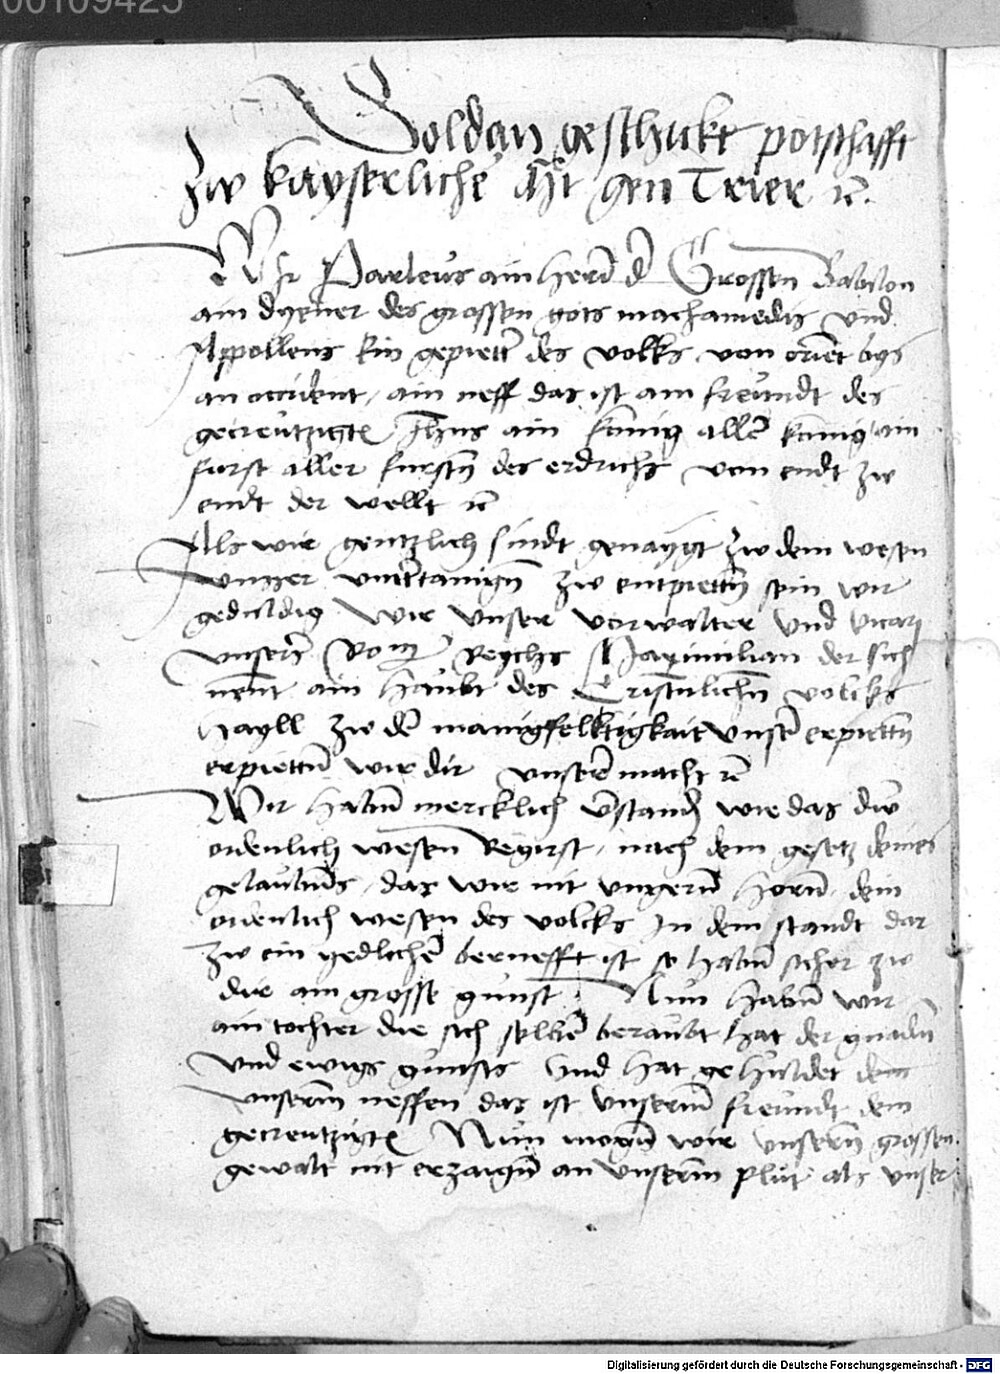 00109425
Soldan geschickt potschafft
zw kayserliche mt gen Trier rc.
Wir Parleus ain herr d Grossen Babilon
ain dyener des grossen gots machamedis und
Appollens kin gepietter des volks von orient bys
an occident, ain neff das ist ain freundt des
gecreutzigte Jhus ain kunig aller kunig ain
furst aller furstn des erdrichs von endt zw
endt der wellt rc
Als wir gentzlich sindt genaygt zw dem wesen
unser undertanign zw entpiettn sein wir
geduldig Wir unser vorwalter und vicarj
unsers Romr Reychs Maximilian der sich
nent ain haubt des Cristnlichn volcks
hayll zw der manigfeltigkait unser erpiettn
erpiettn wir dir unsere macht rc
Wir habn mercklich verstandn wie das du
ordenlich wesen Regirst, nach dem gesetz deines
gelaubns, das wir mit ungern horn dein
ordenlich wesen des volcks In dem standt dar
zw ein yedlicher bernefft ist so habn sicher zw
dir ain grosse gunst, Nun habn wir
ain tochter die sich selber beraubt hat der gnadn
und ewigs gunsts Und hat gehuldet dem
unserm neffen das ist unserm freundt dem
gecreutzigte Nun mogn wir unsern grossen
gewalt nit erzaign an unserm plut als unser
Digitalisierung gefördert durch die Deutsche Forschungsgemeinschaft - DFG